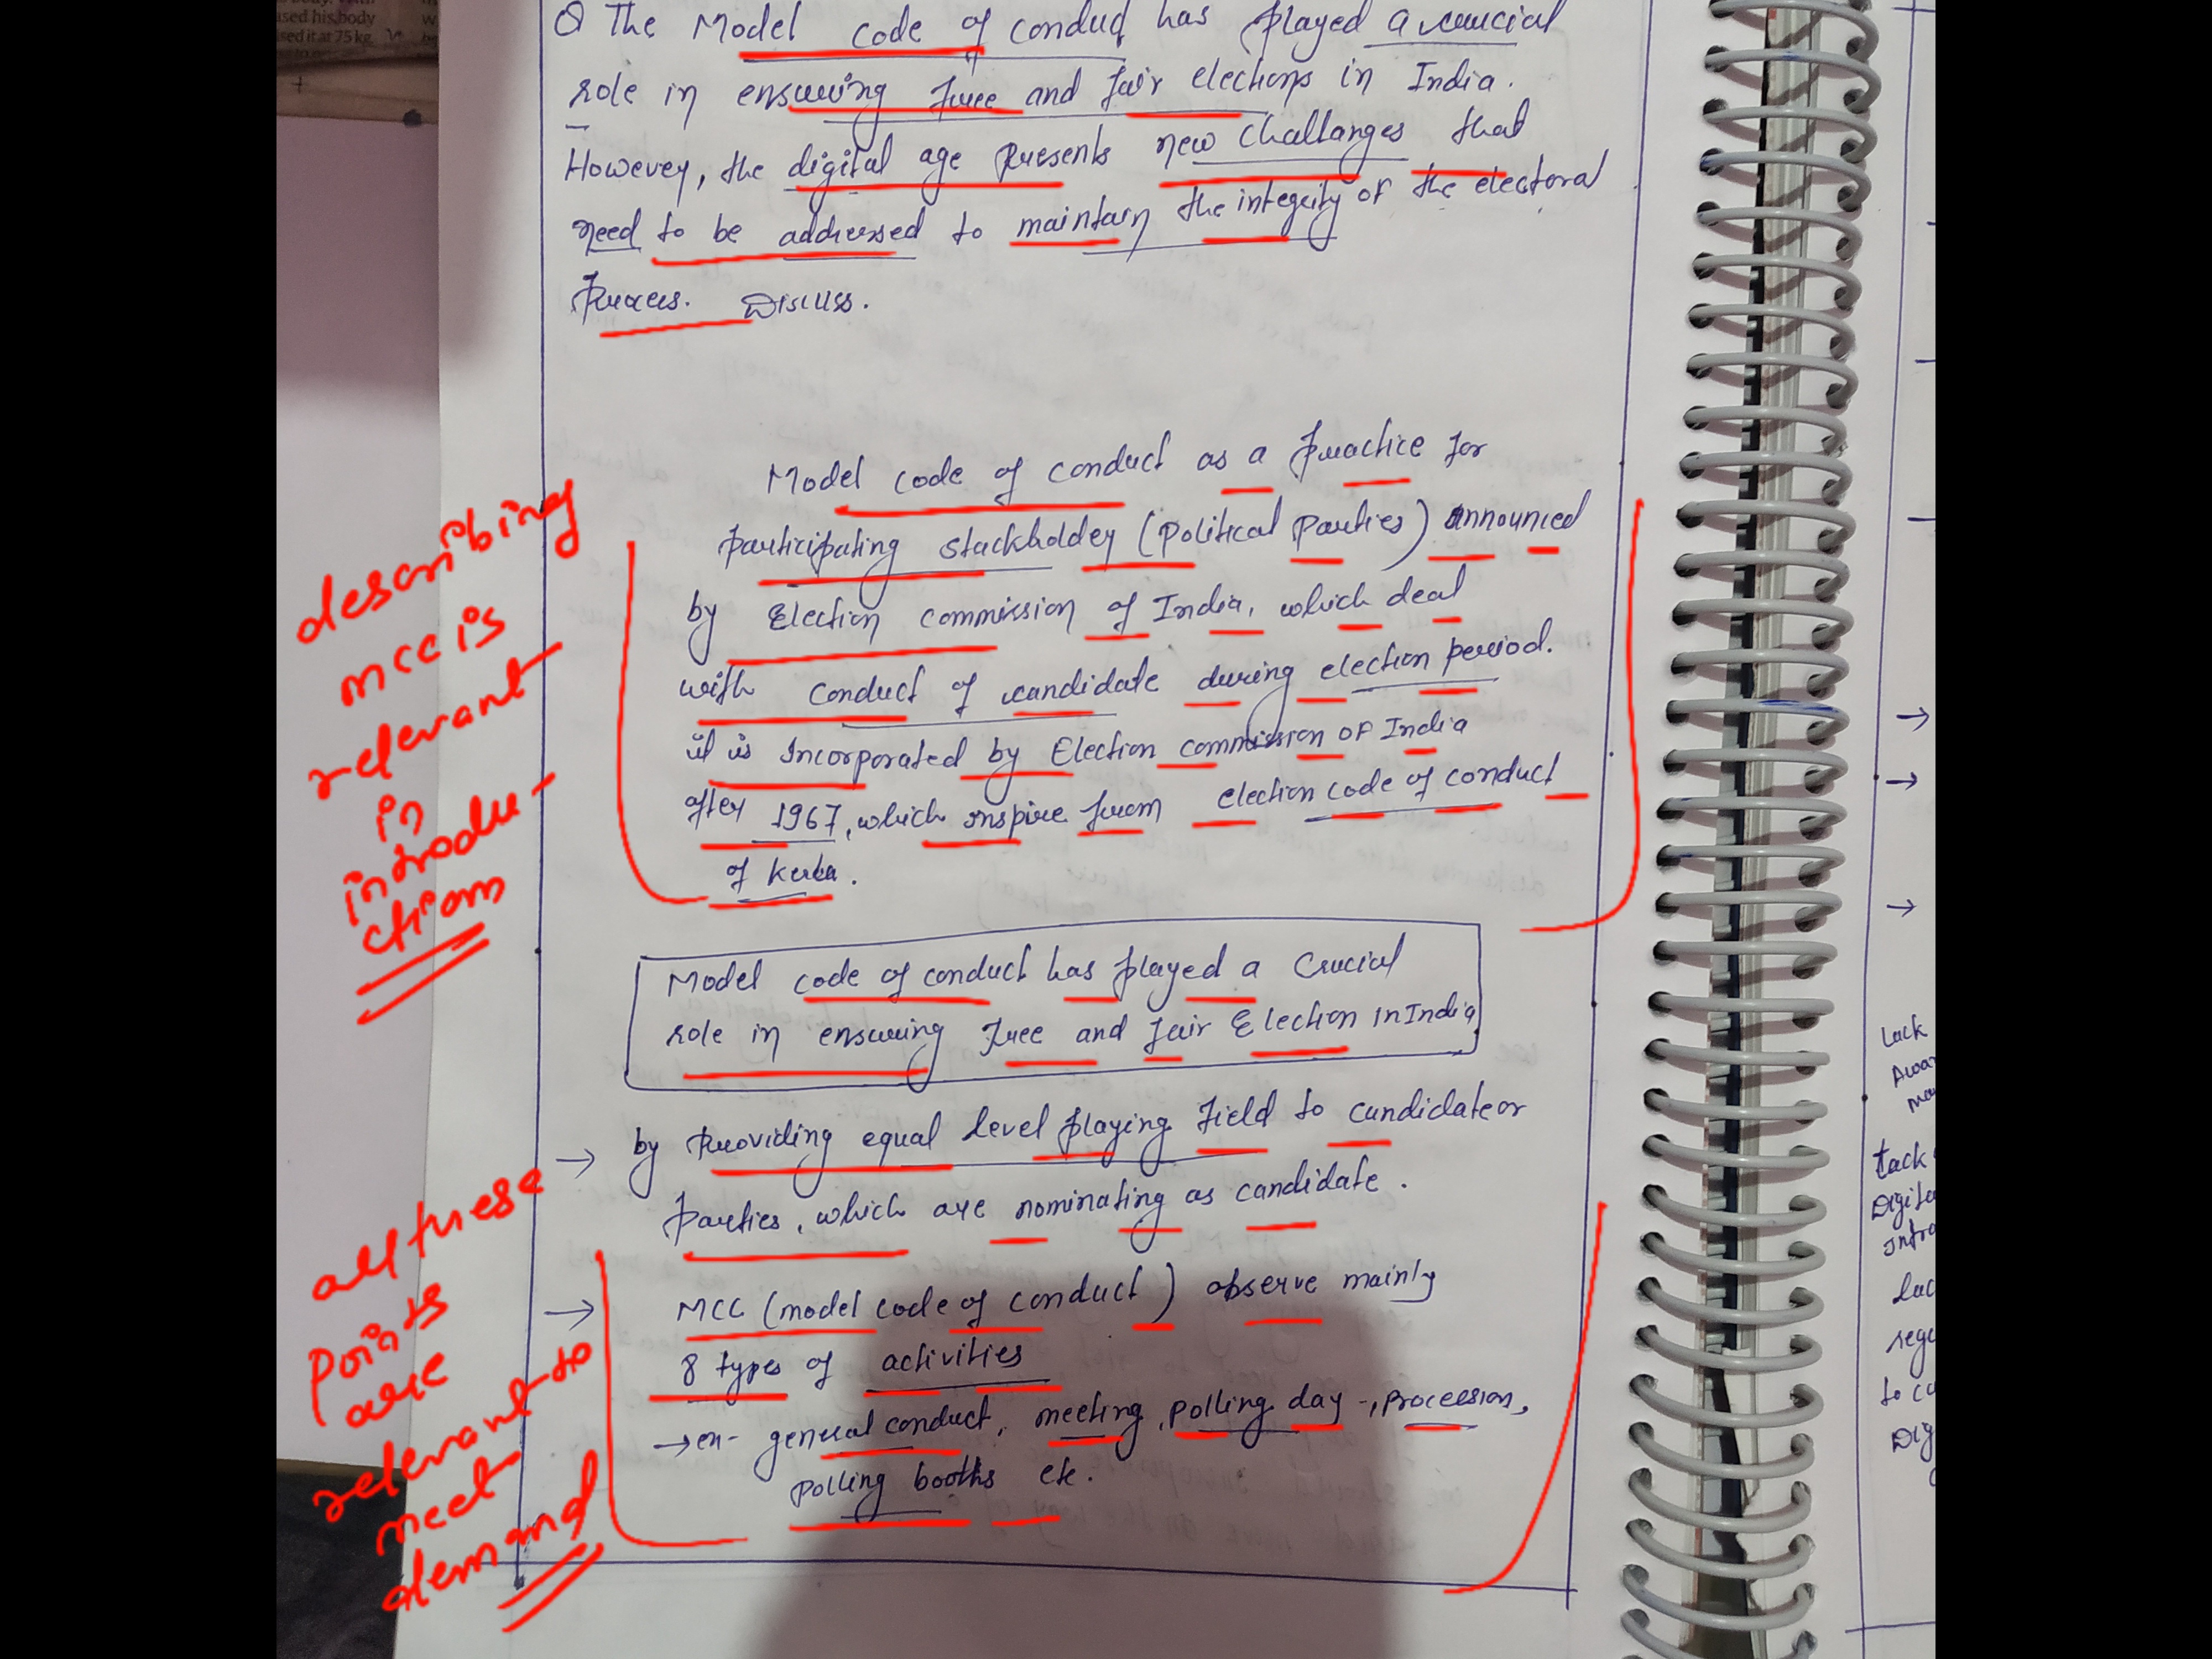 ased his body
sed it at 75 kg.
Q The Model code of conduct has played a crucial
role in ensuring free and fair elections in India.
However, the digital age presents new challanges that
need to be addressed to maintain the integrity of the electoral
process. Discuss.
Model code of conduct as a practice for
participating stackholder (political parties) announced
by Election commission of India, which deal
with conduct of candidate during election period.
it is Incorporated by Election commission of India
after 1967, which inspire from election code of conduct
of Kerla.
describing
mcc is
relevant
in
introdu-
ction
Model code of conduct has played a crucial
role in ensuring free and fair Election in India
→ by providing equal level playing field to candidate or
parties, which are nominating as candidate.
→ MCC (model code of conduct) observe mainly
8 types of activities
→ ex- general conduct, meeting, polling day, procession,
polling booths etc.
all these
points
are
relevant to
meet
demand
Lack
Digit